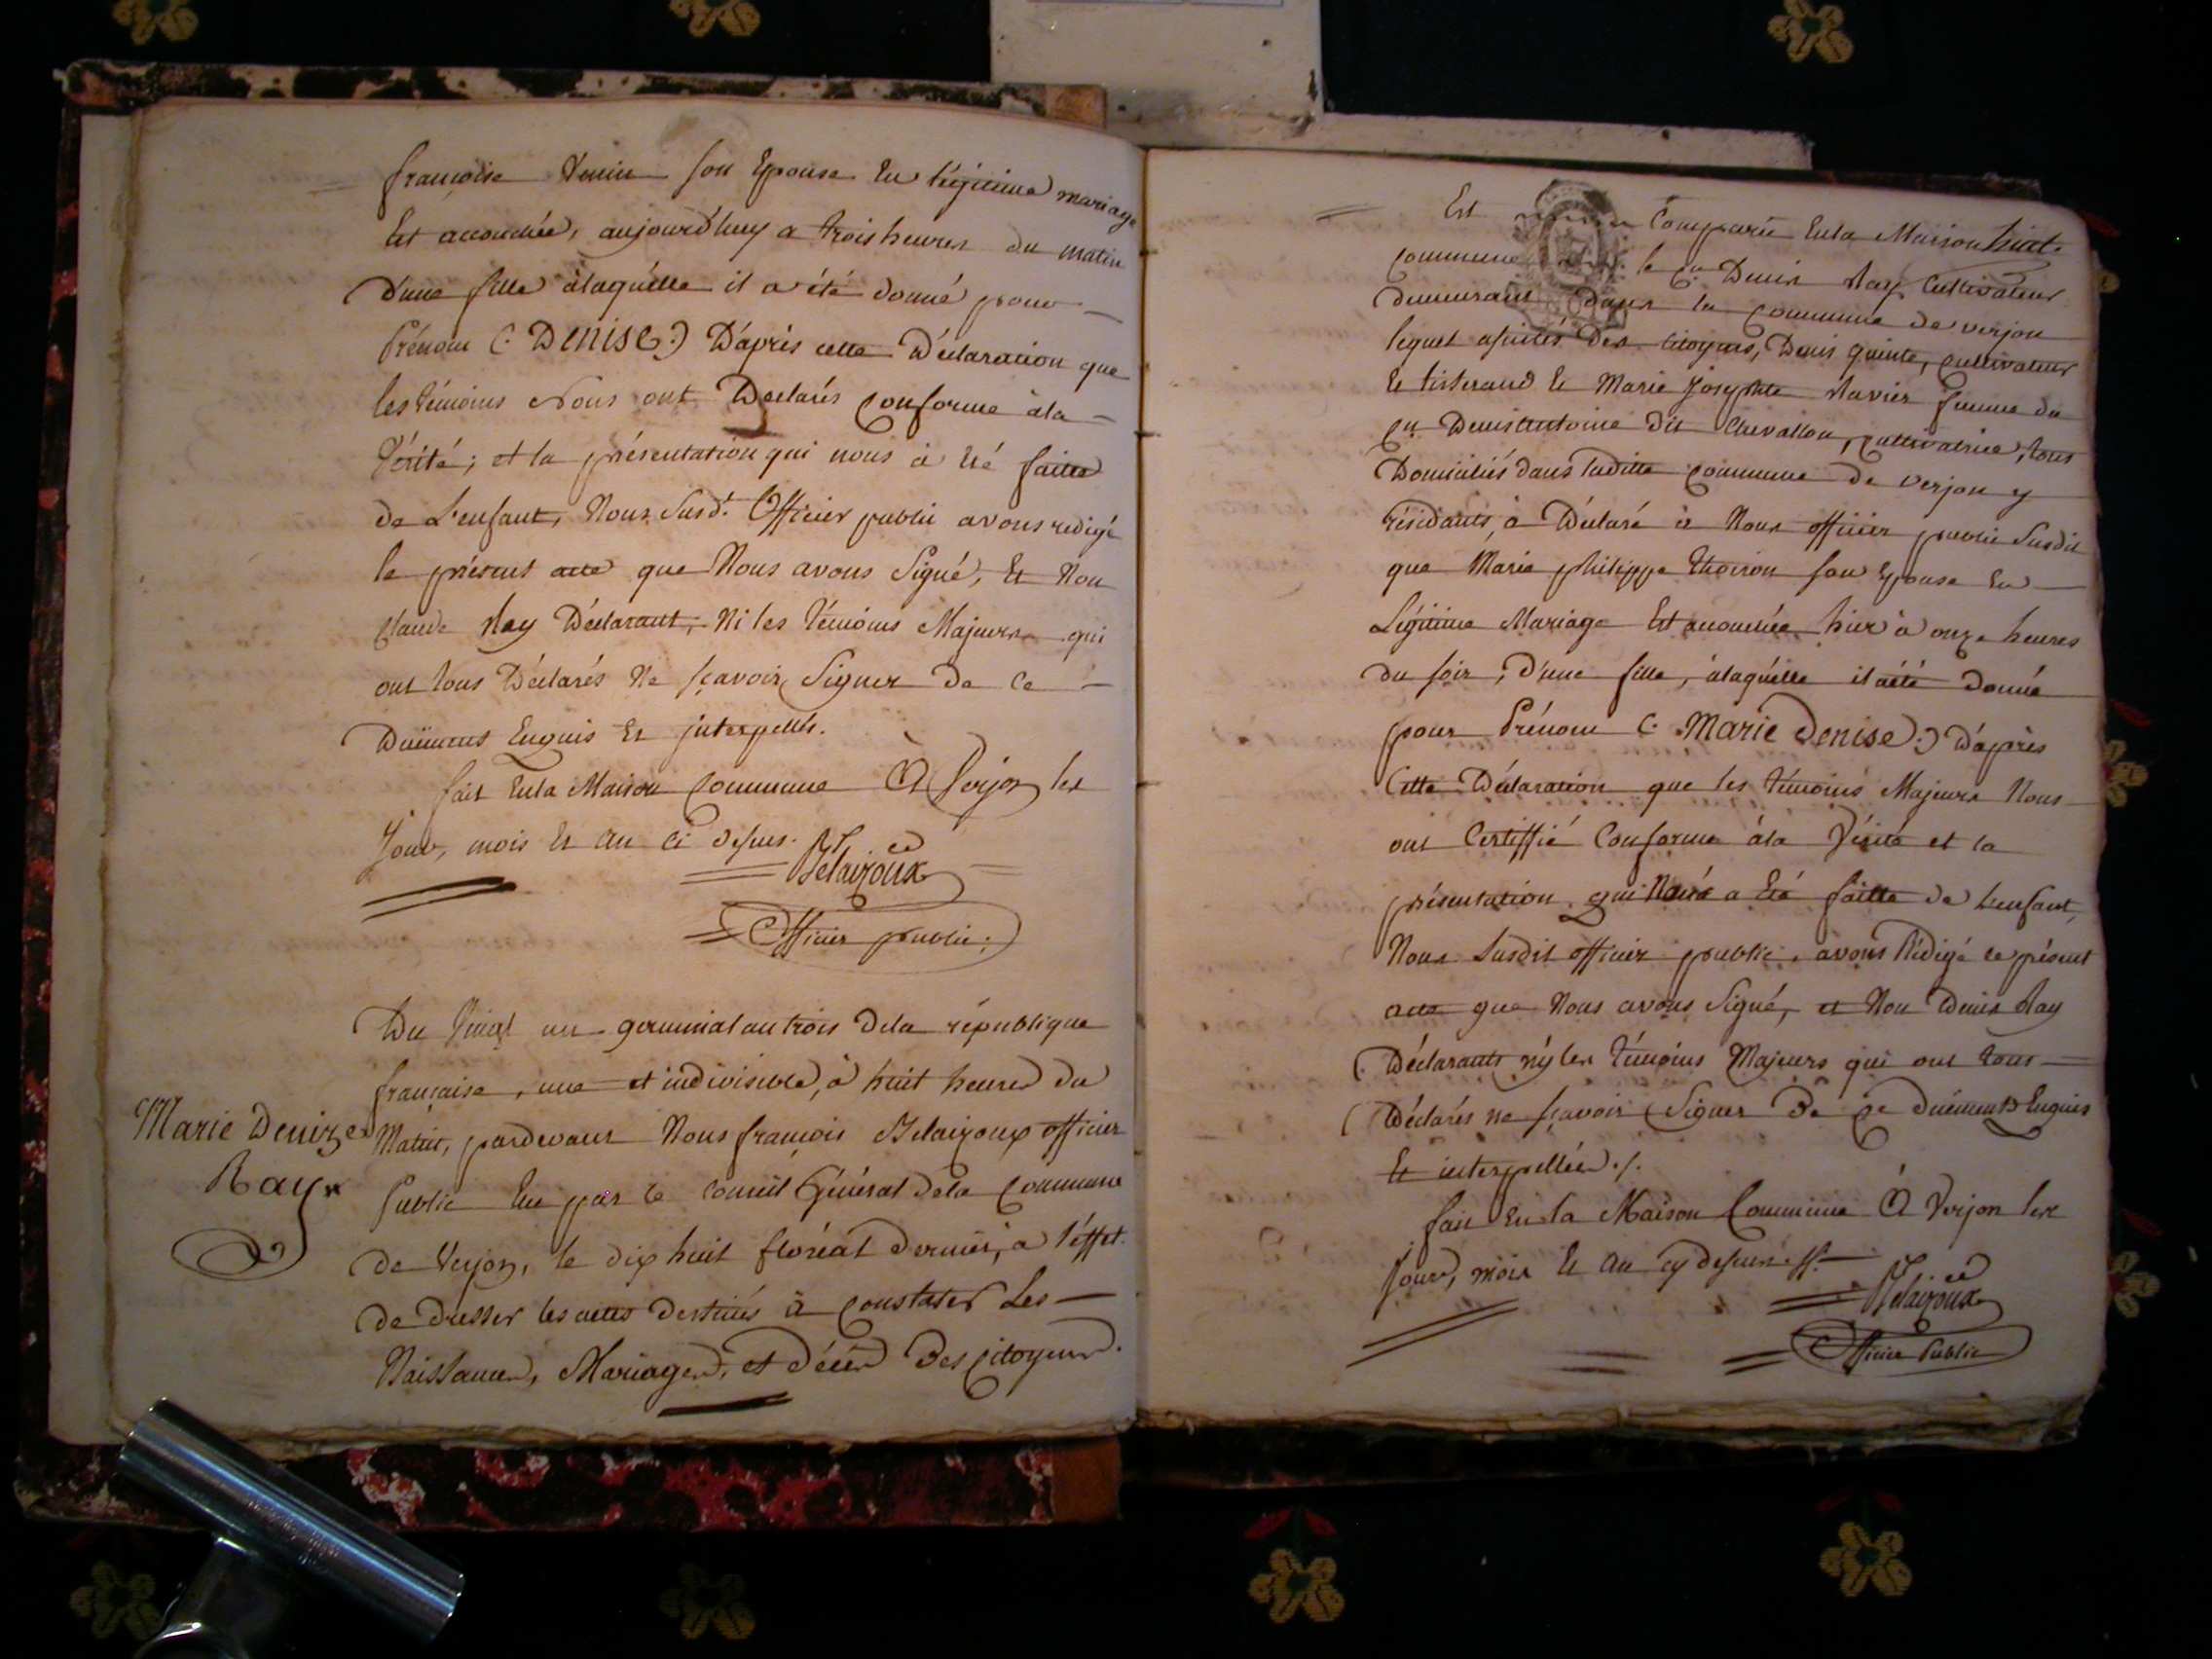 françoise son Epouse En légitime mariage
Est accouchée, aujourd'huy a trois heures du matin
D'une fille àlaquelle il a été donné pour
Prénom (: DENISE:) D'après cette Déclaration que
les témoins Nous ont Declarés conforme àla
Vérité; et la présentation qui nous à été faitte
de L'enfant, Nous Susd. Officier public avons redigé
le présent acte que Nous avons Signé, Et Non
Claude Ray Déclarant, Ni les témoins Majeurs qui
ont tous Déclarés Ne sçavoir Signer De Ce
Duëment Enquis Et interpellés.
fait Enla Maison Commune A Verjon les
Jour, mois Et An Ci Dessus.
Officier public.
Du Vingt un germinal an trois Dela république
française, une et indivisible, à huit heures Du
Marie Denize
Matin, pardevant Nous françois officier
Ray
Public Elu par le Conseil Général Dela Commune
de Verjon, le dix huit floréal dernier, a l'éffet
de dresser les actes destinés à Constater Les
Naissances, Mariages, et Décès Des Citoyens.
Est Comparu Enla Maison
commune le Cn Denis Ray Cultivateur
demeurant dans la Commune de verjon
lequel assistés des citoyens, Denis quinte, cultivateur
Et tisserand Et Marie Josephte Ravier femme du
Cn Denis Antoine dit Chevallon, Cultivatrice, tous
Domiciliés dans laditte Commune de verjon y
résidants, à Déclaré à Nous officier public Susdit
que Marie philippe thoiron son Epouse En
Légitime Mariage Est accouchée hier à onze heures
du soir, D'une fille, àlaquelle il àété donné
pour Prénom (: Marie Denise:) D'après
Cette Déclaration que les témoins Majeurs Nous
ont Certiffié Conforme àla Vérité et la
présentation qui Nous a Eté faitte de L'enfant,
Nous Susdit officier public, avons Rédigé le présent
acte que Nous avons Signé, et Non Denis Ray
Déclarants nÿ les témoins Majeurs qui ont tous
Déclarés ne sçavoir Signer De Ce duëments Enquis
Et interpellées./.
fait En la Maison Commune A Verjon les
Jour, mois Et An cy dessus
Officier Public